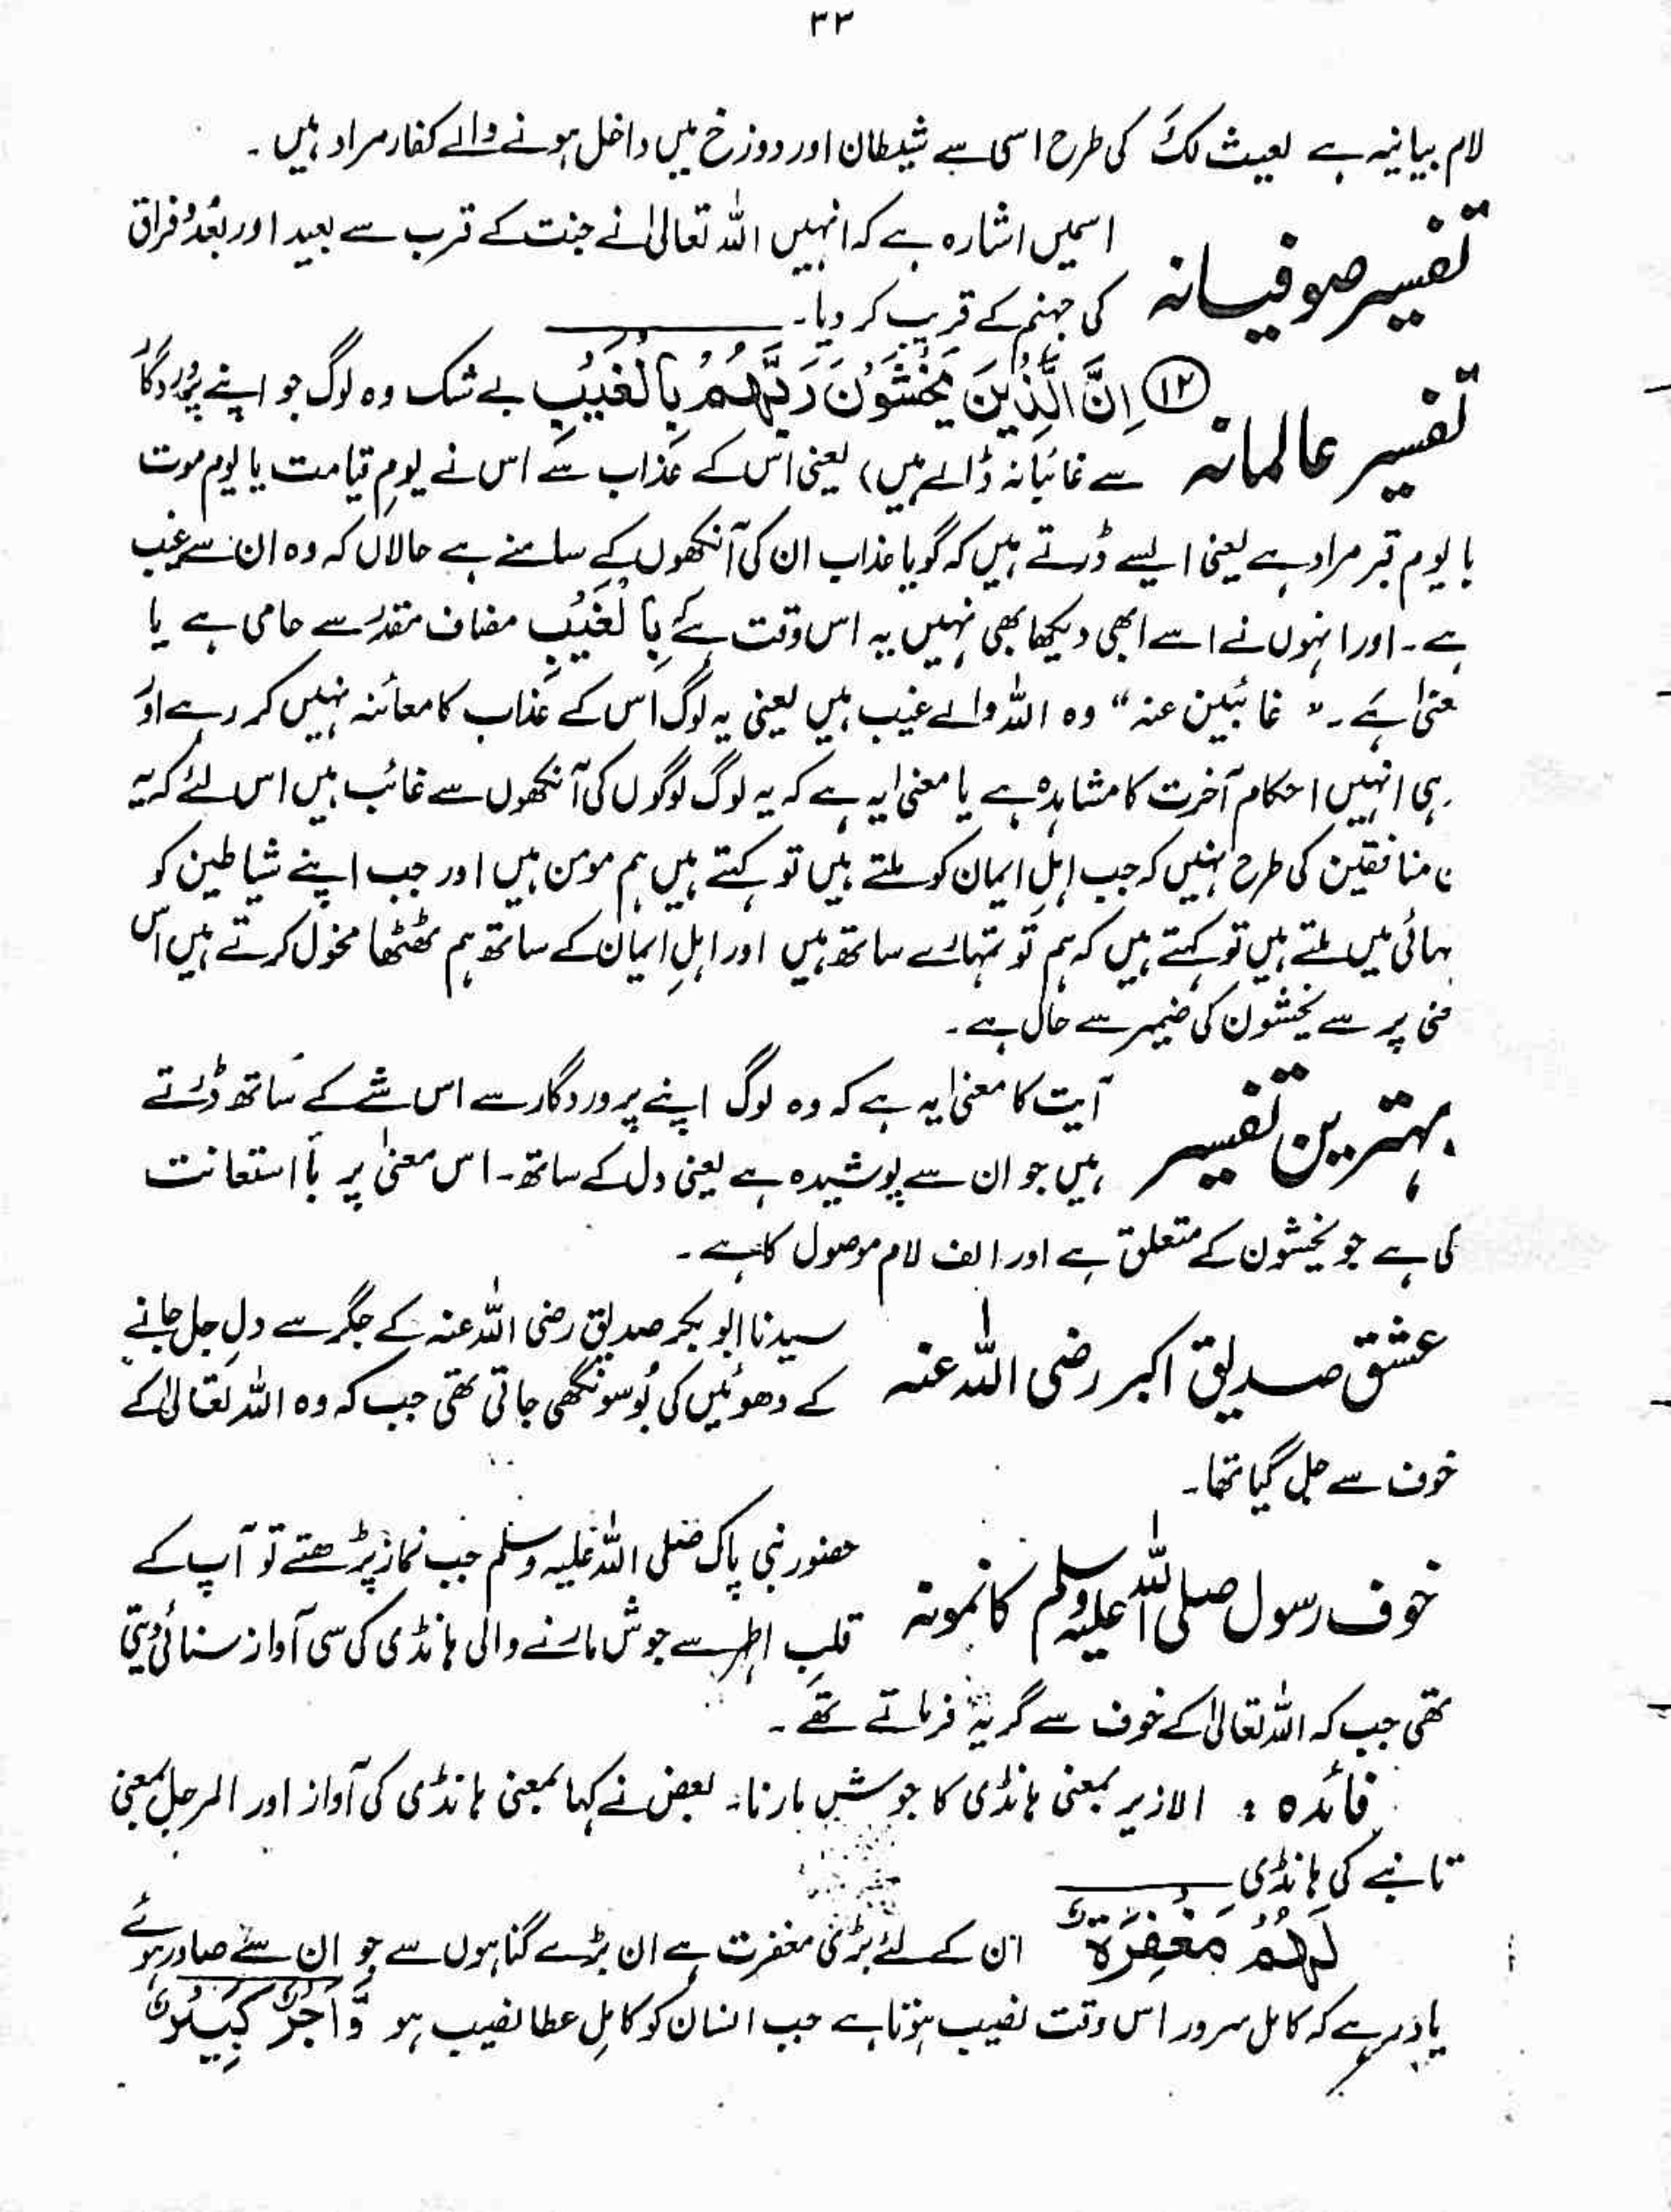 ۳۳
لام بیانیہ ہے لعیث لکَ کی طرح اسی سے شیطان اور دوزخ میں داخل ہونے والے کفار مراد ہیں ۔
تفسیر صوفیانہ اسمیں اشارہ ہے کہ انہیں اللہ تعالیٰ نے جنت کے قرب سے بعید اور بُعْدُ فراق
کی جہنم کے قریب کر دیا۔
تفسیر عالمانہ ⑫ اِنَّ الَّذِیْنَ یَخْشَوْنَ رَبَّہُمْ بِالْغَیْبِ بے شک وہ لوگ جو اپنے پروردگار
سے غائبانہ ڈالے ہیں) یعنی اس کے عذاب سے اس نے یومِ قیامت یا یوم موت
یا یوم قبر مراد ہے یعنی ایسے ڈرتے ہیں کہ گویا عذاب ان کی آنکھوں کے سامنے ہے حالاں کہ وہ ان سے غیب
ہے ۔ اور انہوں نے اسے ابھی دیکھا بھی نہیں یہ اس وقت ہے کے بِالْغَیْبِ مضاف مقدر سے حامی ہے یا
عنیٰ ہے ۔ " غائبین عنہ " وہ اللہ والے غیب ہیں یعنی یہ لوگ اس کے عذاب کا معائنہ نہیں کر رہے اور
ہی انہیں احکام آخرت کا مشاہدہ ہے یا معنیٰ یہ ہے کہ یہ لوگ لوگوں کی آنکھوں سے غائب ہیں اس لئے کہ یہ
ن منافقین کی طرح نہیں کہ جب اہلِ ایمان کو ملتے ہیں تو کہتے ہیں ہم مومن ہیں اور جب اپنے شیاطین کو
ہائی میں ملتے ہیں تو کہتے ہیں کہ ہم تو تمہارے ساتھ ہیں اور اہلِ ایمان کے ساتھ ہم ٹھٹھا مخول کرتے ہیں اس
عنی پر سے یخشون کی ضمیر سے حال ہے ۔
بہترین تفسیر آیت کا معنیٰ یہ ہے کہ وہ لوگ اپنے پروردگار سے اس شے کے ساتھ ڈرتے
ہیں جو ان سے پوشیدہ ہے یعنی دل کے ساتھ ۔ اس معنیٰ پر بأ استعانت
کی ہے جو یخشون کے متعلق ہے اور الف لام موصول کا ہے ۔
عشق صدیق اکبر رضی اللہ عنہ سیدنا ابو بکر صدیق رضی اللہ عنہ کے جگر سے دل جل جانے
کے دھوئیں کی بُو سونگھی جاتی تھی جب کہ وہ اللہ تعالیٰ کے
خوف سے جل گیا تھا۔
خوف رسول صلی اللہ علیہ وسلم کا نمونہ حضور نبی پاک صلی اللہ علیہ وسلم جب نماز پڑھتے تو آپ کے
قلبِ اطہر سے جوش مارنے والی ہانڈی کی سی آواز سنائی دیتی
تھی جب کہ اللہ تعالیٰ کے خوف سے گریہ فرماتے تھے ۔
فائدہ : الازیر بمعنی ہانڈی کا جوش مارنا۔ بعض نے کہا بمعنی ہانڈی کی آواز اور المرجل بمعنی
تانبے کی ہانڈی
لَہُمْ مَغْفِرَۃٌ ان کے لئے بڑی مغفرت ہے ان بڑے گناہوں سے جو ان سے صادر ہوئے
یاد رہے کہ کامل سرور اس وقت نصیب ہوتا ہے جب انسان کو کاملِ عطا نصیب ہو وَّاَجْرٌ کَبِیْرٌ